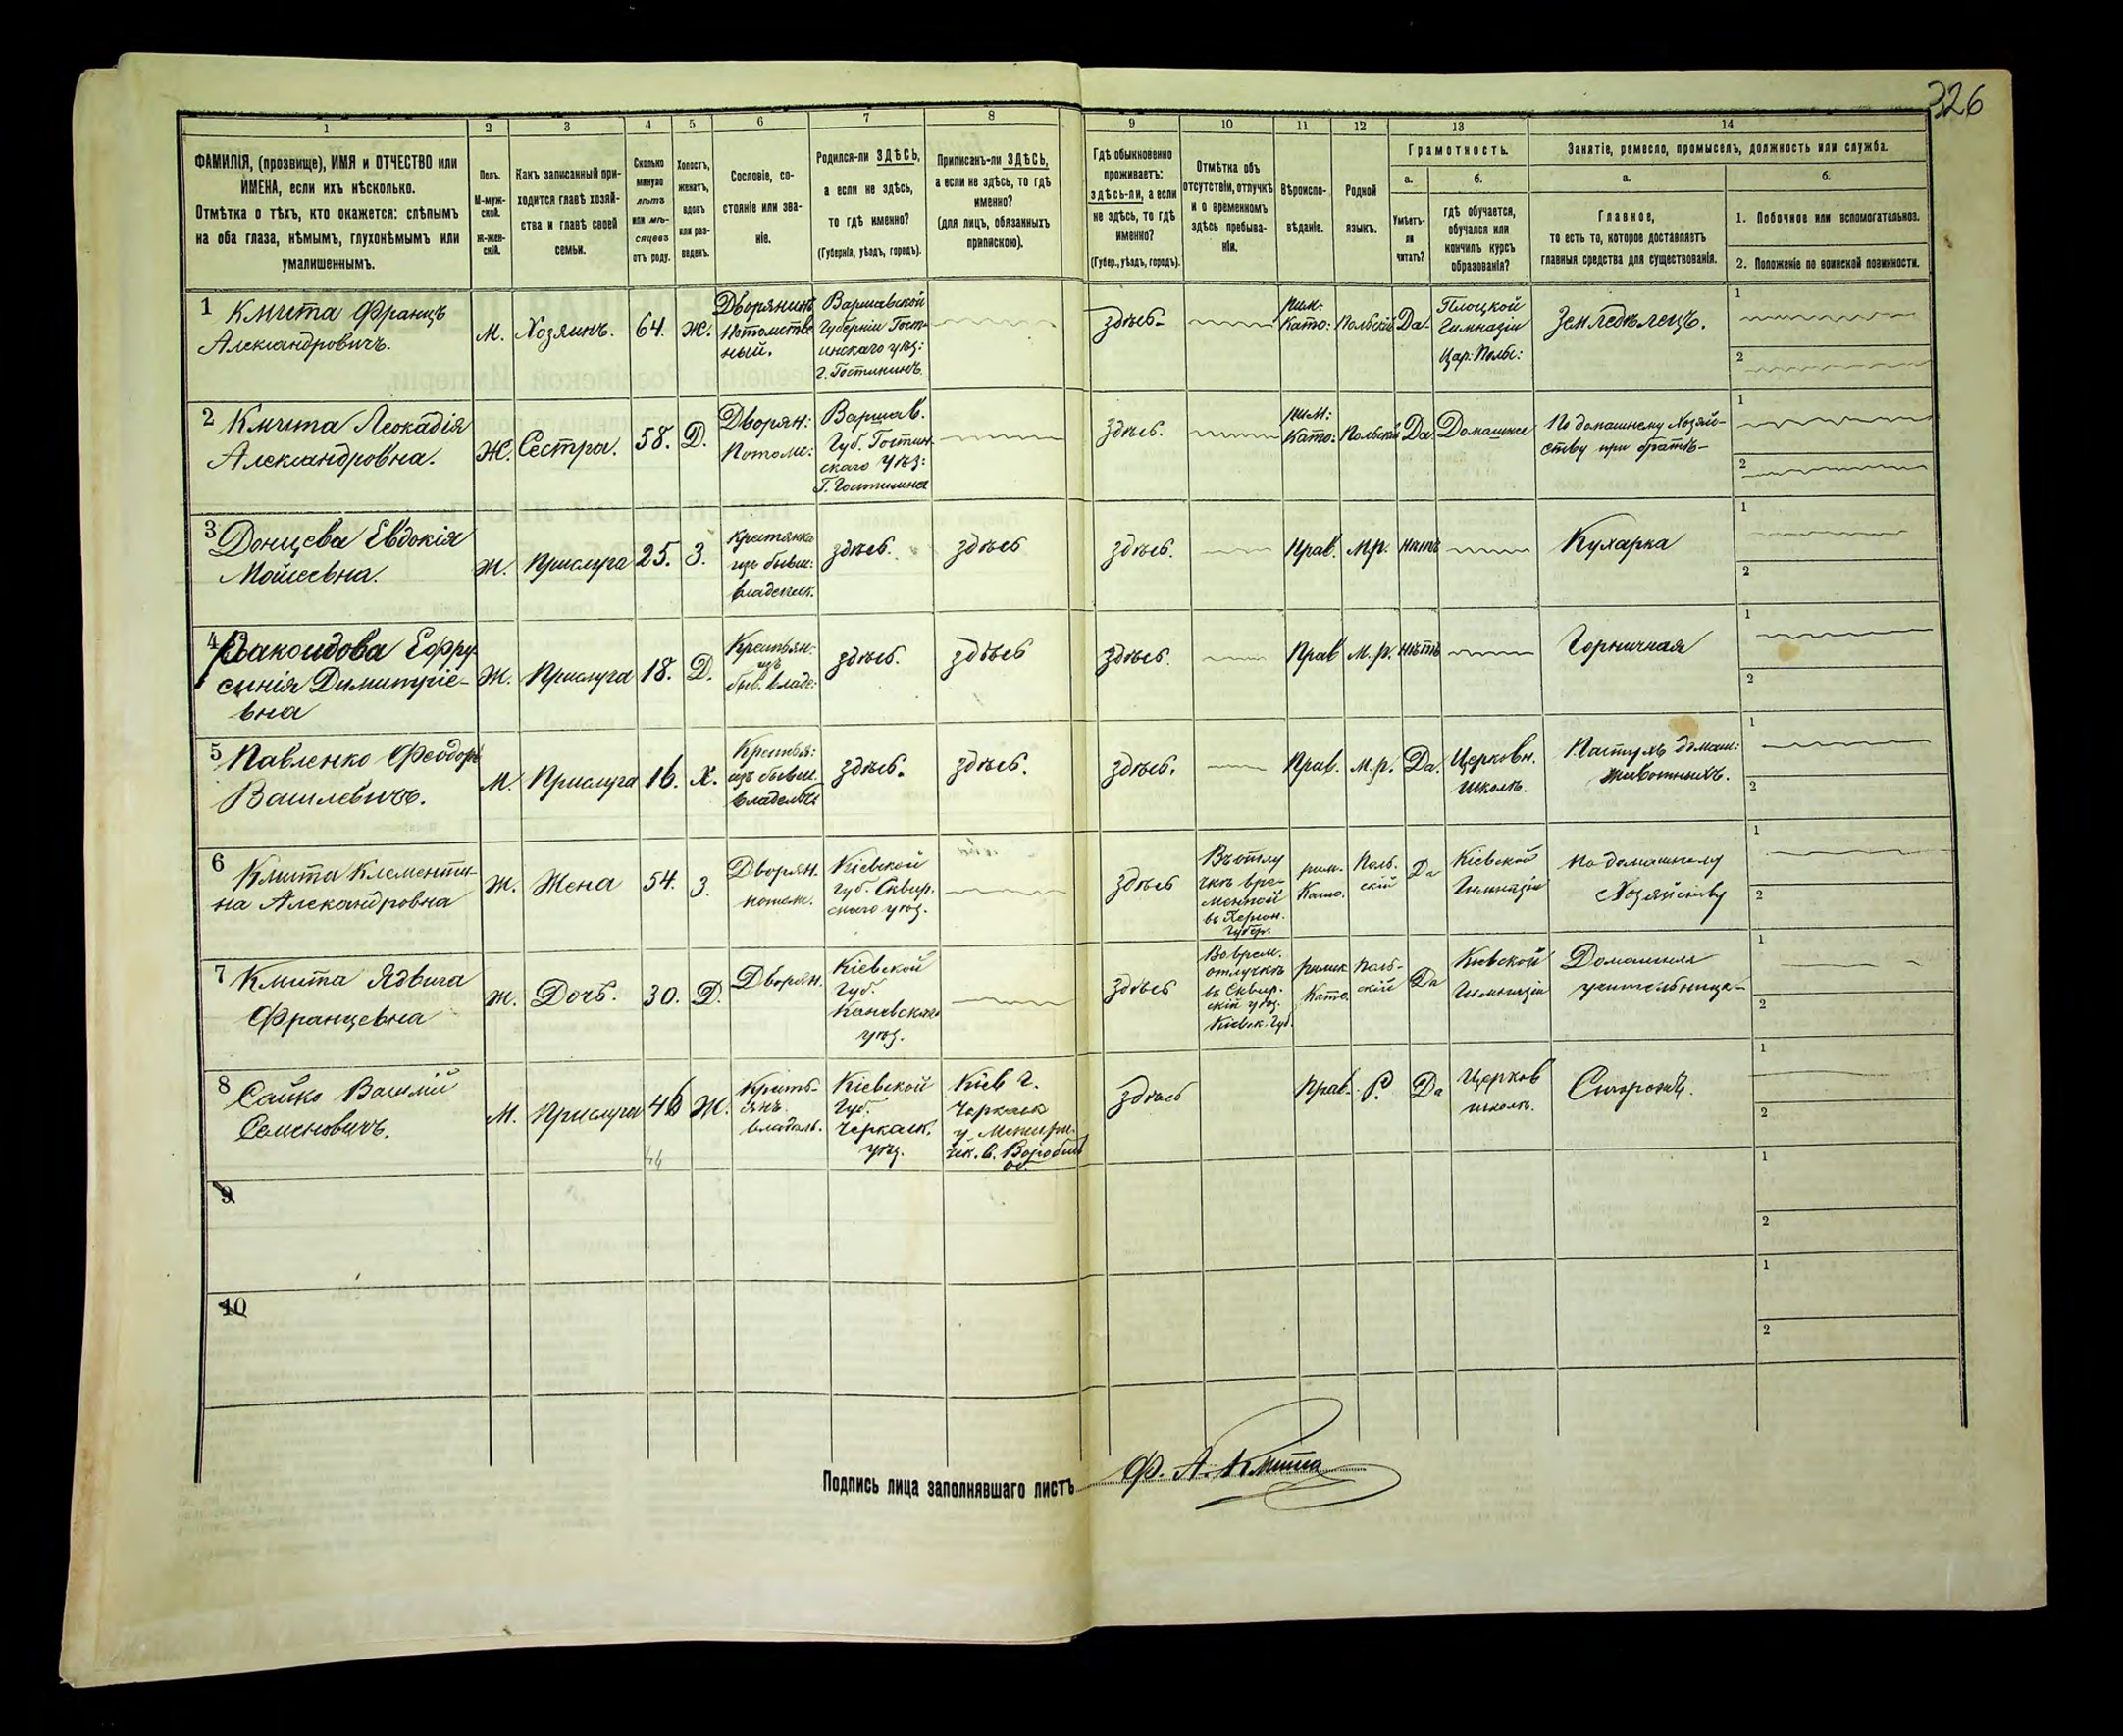 326
1 2 3 4 5 6 7 8 9 10 11 12 13 14
ФАМИЛІЯ, (прозвище), ИМЯ и ОТЧЕСТВО или
ИМЕНА, если ихъ нѣсколько.
Отмѣтка о тѣхъ, кто окажется: слѣпымъ
на оба глаза, нѣмымъ, глухонѣмымъ или
умалишеннымъ.
Полъ.
М-муж-
ской.
Ж-жен-
скій.
Какъ записанный при-
ходится главѣ хозяй-
ства и главѣ своей
семьи.
Сколько
минуло
лѣтъ
или мѣ-
сяцевъ
отъ роду.
Холостъ,
женатъ,
вдовъ
или раз-
веденъ.
Сословіе, со-
стояніе или зва-
ніе.
Родился-ли ЗДѢСЬ,
а если не здѣсь,
то гдѣ именно?
(Губернія, уѣздъ, городъ).
Приписанъ-ли ЗДѢСЬ,
а если не здѣсь, то гдѣ
именно?
(для лицъ, обязанныхъ
припискою).
Гдѣ обыкновенно
проживаетъ:
здѣсь-ли, а если
не здѣсь, то гдѣ
именно?
(Губер., уѣздъ, городъ).
Отмѣтка объ
отсутствіи, отлучкѣ
и о временномъ
здѣсь пребыва-
ніи.
Вѣроиспо-
вѣданіе.
Родной
языкъ.
Грамотность.
а.
Умѣетъ-
ли
читать?
б.
гдѣ обучается,
обучался или
кончилъ курсъ
образованія?
Занятіе, ремесло, промыселъ, должность или служба.
а.
Главное,
то есть то, которое доставляетъ
главныя средства для существованія.
б.
1. Побочное или вспомогательное.
2. Положеніе по воинской повинности.
1 Кмита Францъ
Александровичъ.
М.
Хозяинъ.
64.
Ж.
Дворянинъ
Потомстве
ный.
Варшавской
Губерніи Гост-
инскаго уѣз:
г. Гостининъ
здѣсь-
Рим:
Като:
Польскій
Да.
Плоцкой
Гимназіи
Цар: Поль:
Земледѣлецъ.
1
2
2 Кмита Леокадія
Александровна.
Ж.
Сестра.
58.
Д.
Дворян:
Потом:
Варшав.
Губ. Гостин
скаго Уѣз:
Г. Гостинина
здѣсь.
Рим:
Като:
Польскій
Да
Домашнее
По домашнему Хозяй-
ству при братѣ-
1
2
3 Донцева Евдокія
Мойсеевна.
Ж.
Прислуга
25.
З.
Крестянка
изъ бывш:
владельч.
здѣсь.
здѣсь
здѣсь.
Прав.
М.р.
нѣтъ
Кухарка
1
2
4
Ефру
синія Димитріе-
вна
Ж.
Прислуга
18.
Д.
Крестьян:
изъ
быв. владе:
здѣсь.
здѣсь
здѣсь.
Прав
М.р.
нѣтъ
Горничная
1
2
5 Павленко Феодоръ
Василевичъ.
М.
Прислуга
16.
Х.
Крестья:
изъ бывш.
владельче
здѣсь.
здѣсь.
здѣсь.
Прав.
М.р.
Да.
Церковн.
школѣ.
Пастухъ домаш:
животныхъ.
1
2
6 Кмита Клементи-
на Александровна
Ж.
Жена
54.
З.
Дворян.
потом.
Кіевской
Губ. Сквир.
скаго уѣз.
здѣсь
Въ отлу
чкѣ вре-
менной
въ Херсон.
Губер.
рим.
Като.
Поль.
скій
Да
Кіевской
Гимназіи
По домашнему
Хозяйству
1
2
7 Кмита Ядвига
Францевна
Ж.
Дочь.
30.
Д.
Дворян.
Кіевской
Губ.
Каневскаго
уѣз.
здѣсь
Во врем.
отлучкѣ
въ Сквир.
скій уѣз.
Кіевск. Губ.
римск
Като.
Поль-
скій
Да
Кіевской
Гимназіи
Домашняя
учительница-
1
2
8 Сайко Василій
Семеновичъ.
М.
Прислуга
46
Ж.
Кресть-
янъ
владель.
Кіевской
Губ.
Черкаск.
уѣз.
44
Кіев г.
Черкаск
у.
здѣсь
Прав.
Р.
Да
Церков
школѣ.
Сторожъ.
1
2
9
1
2
10
1
2
Подпись лица заполнявшаго листъ Ф. А. Кмита